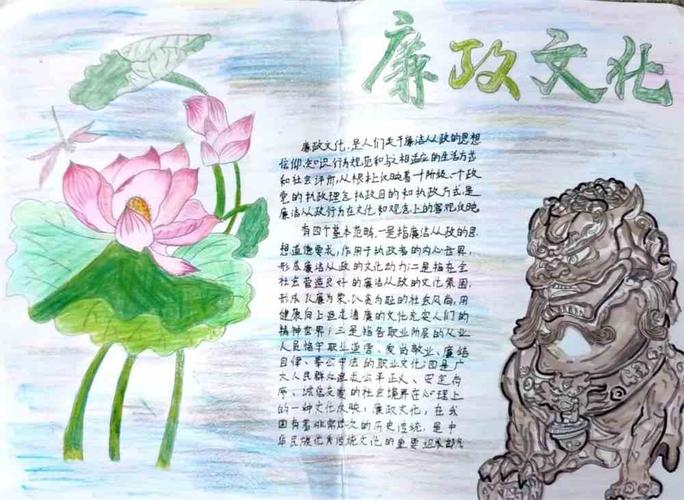 廉政文化
廉政文化,是人们关于廉洁从政的思想
信仰、知识、行为规范和与之相适应的生活方式
和社会评价,从根本上反映着一个阶级、一个政
党的执政理念、执政目的和执政方式,是
廉洁从政行为在文化和观念上的客观反映。
有四个基本范畴,一是指廉洁从政的思
想道德要求,作用于执政者的内心世界,
形成廉洁从政的文化动力;二是指在全
社会营造良好的廉洁从政的文化氛围,
形成以廉为荣、以贪为耻的社会风尚,用
健康向上追求清廉的文化充实人们的
精神世界;三是指各职业阶层的从业
人员恪守职业道德、爱岗敬业、廉洁
自律、奉公守法的职业文化;四是广
大人民群众追求公平正义、安定有
序、诚信友善的社会境界在心理上
的一种文化反映。廉政文化,在我
国有着非常悠久的历史传统,是中
华民族优秀传统文化的重要